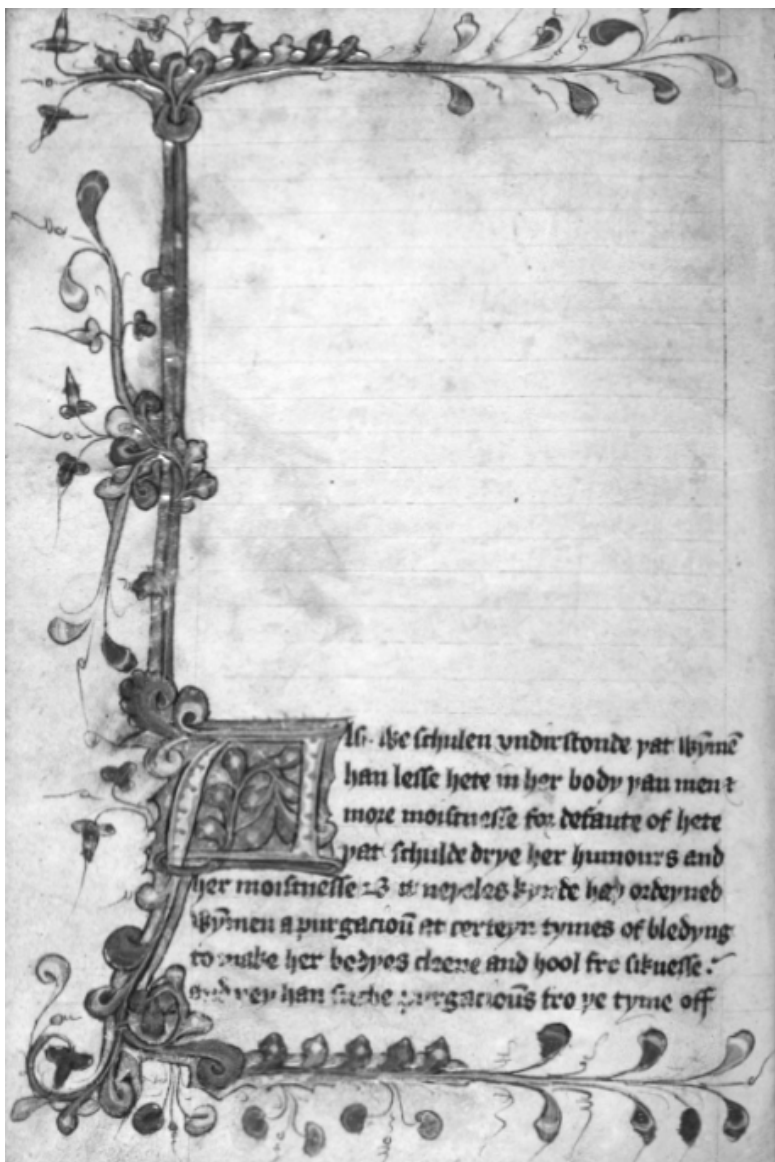 As we schulen vndirstonde yat wȳmē
han lesse hete in her body yan men ⁊
more moistnesse for defaute of hete
yat schulde drye her humours and
her moistnesse neyeles kynde hay ordeyned
wȳmen a purgacioū at certeyn tymes of bledyng
to make her bodyes clene and hool fro siknesse
and yey han suche purgacioūs fro ye tyme off